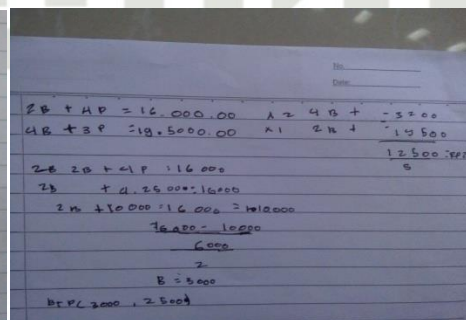 No
Date:
2B + 4P = 16.000.00 x2 4B + -3200
4B + 3P = 19.5000.00 x1 2B + 19500
12500
5
2B 2B + 4P = 16000
2B + 4.2500 = 16000
2B + 10000 = 16000 = 10.000
16000 - 10000
6000
2
B = 3000